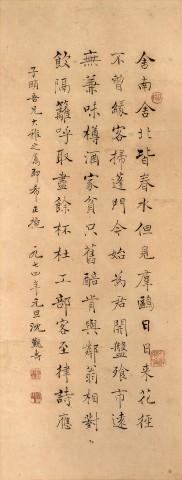 舍南舍北皆春水但見羣鷗日日來花徑
不曾緣客掃蓬門今始為君開盤飧市遠
無兼味樽酒家貧只舊醅肯與鄰翁相對
飲隔籬呼取盡餘杯杜工部客至律詩應
吾兄大雅之屬即希正 一九七四年元旦沈觀壽